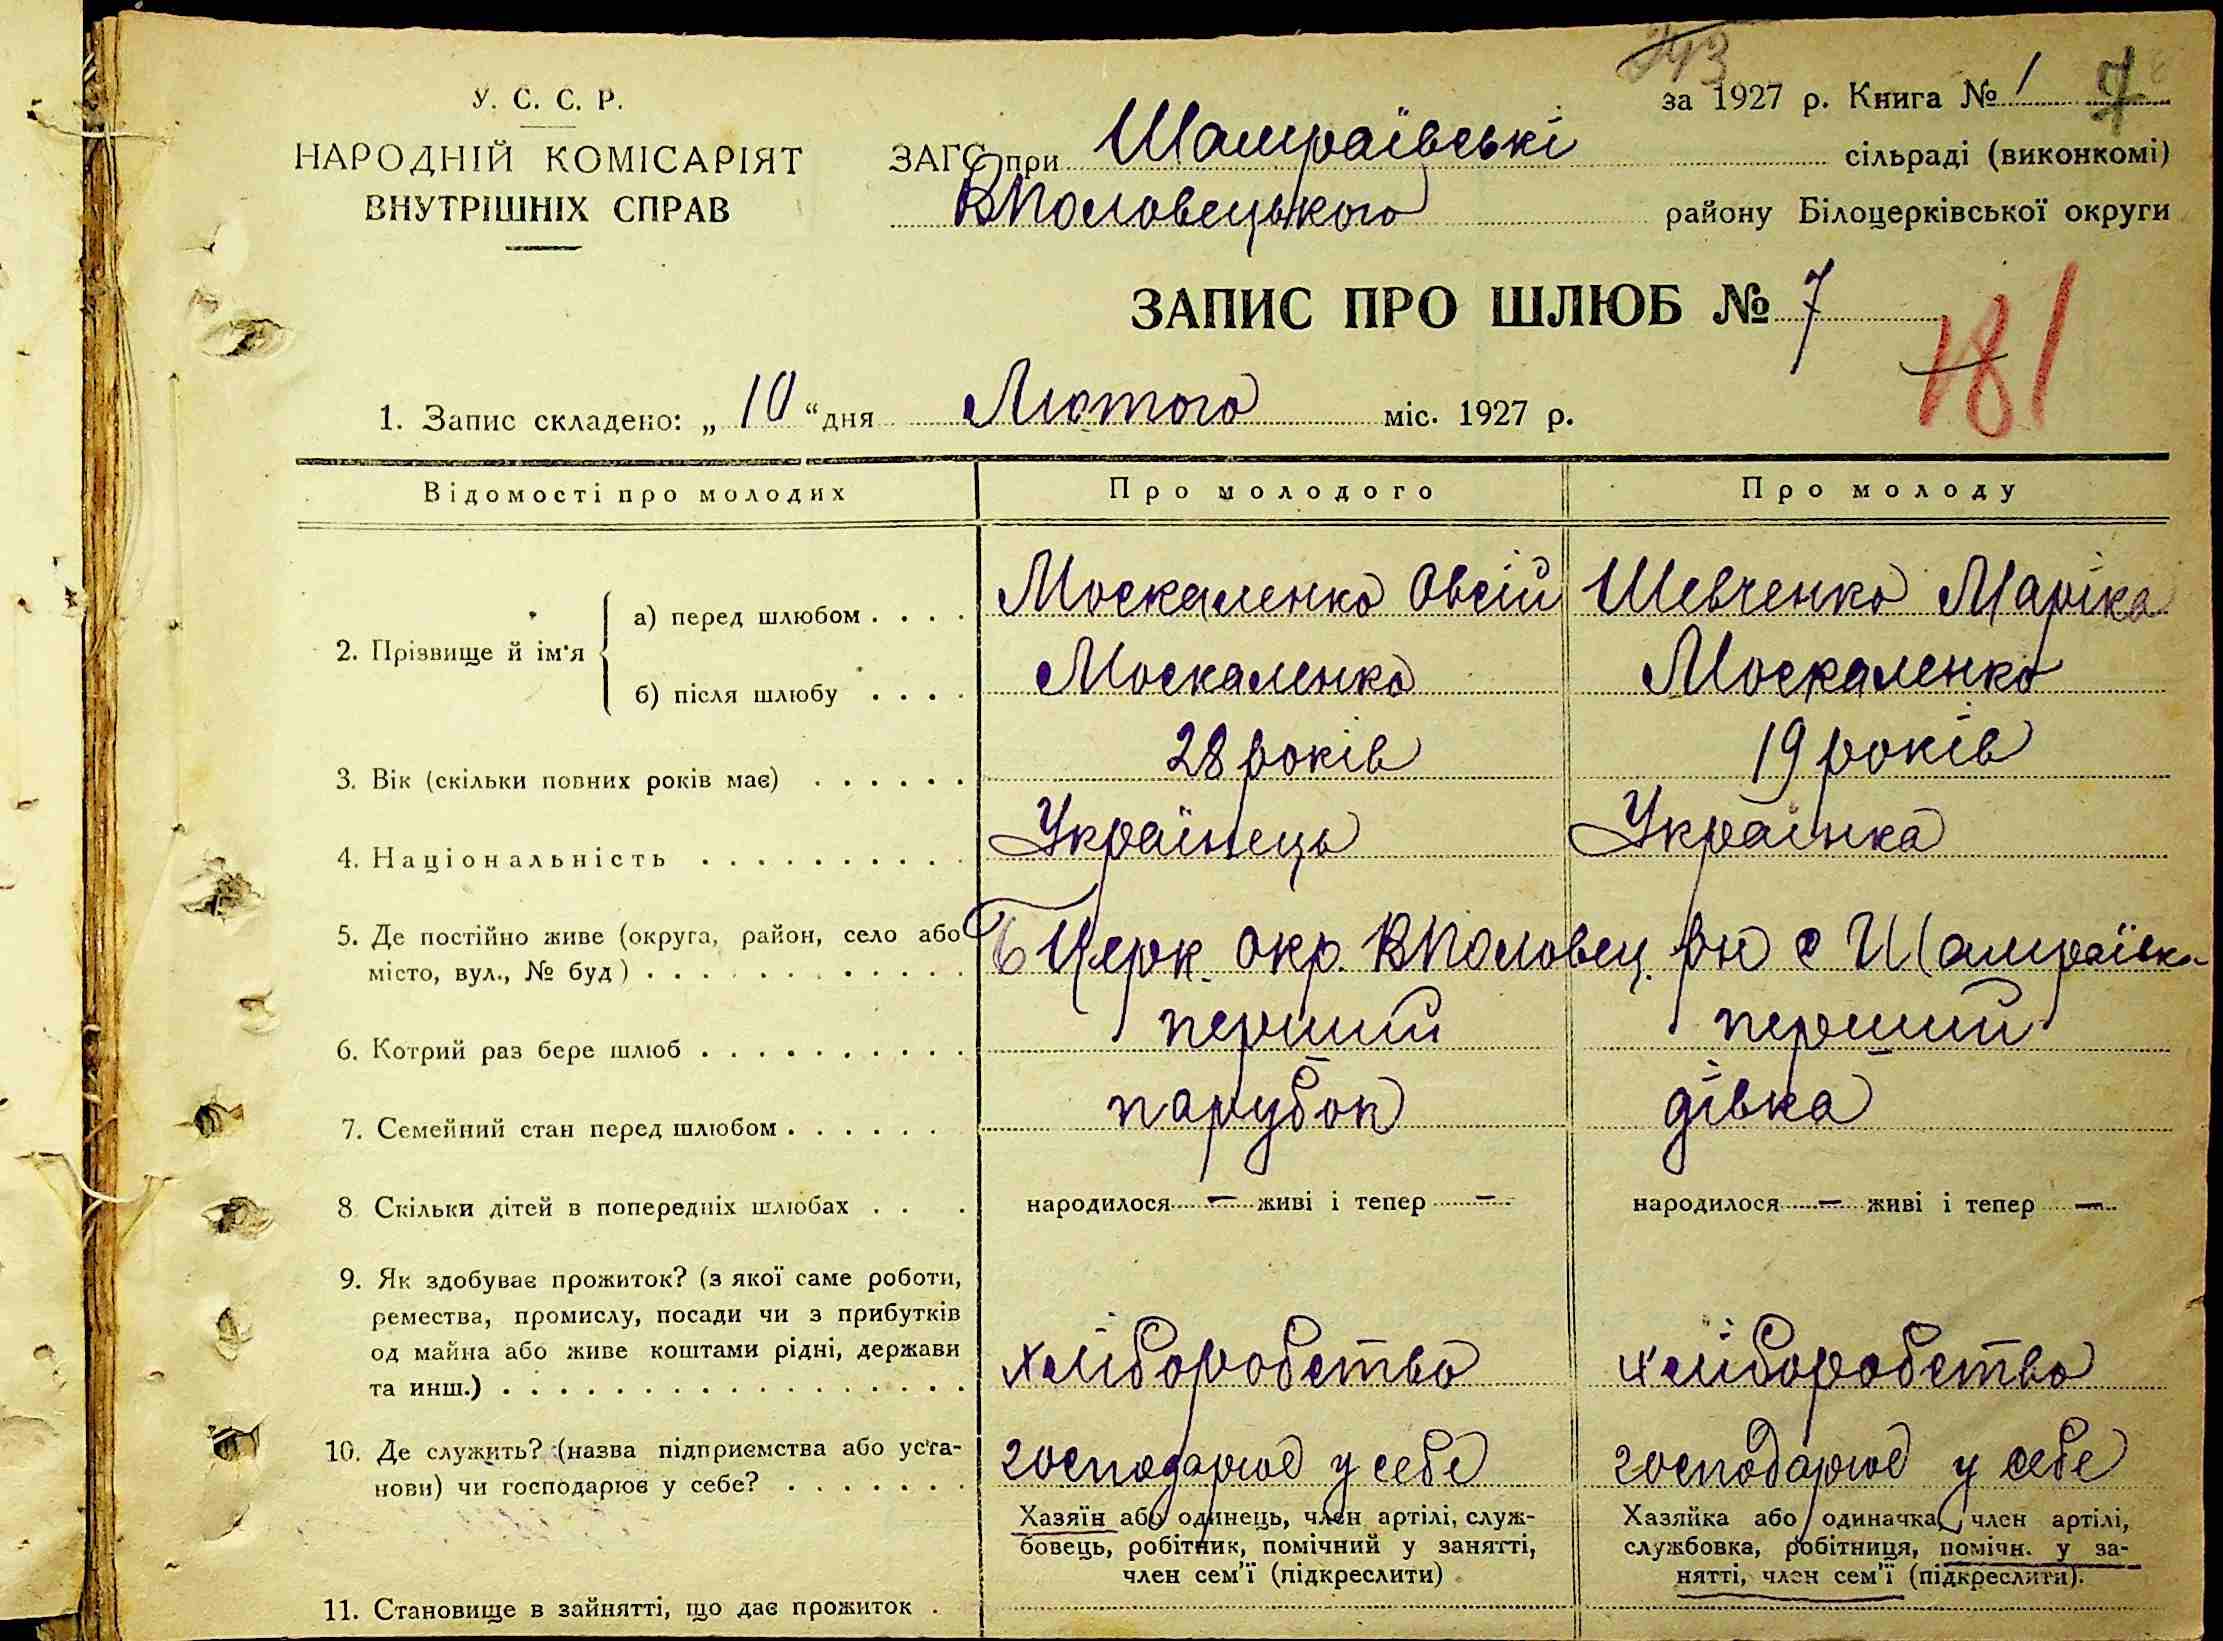 243
У. С. С. Р.
за 1927 р. Книга № 1 7
НАРОДНІЙ КОМІСАРІЯТ
ВНУТРІШНІХ СПРАВ
ЗАГС при Шамраївські сільраді (виконкомі)
ВПоловецького району Білоцерківської округи
ЗАПИС ПРО ШЛЮБ № 7
181
1. Запис складено: „ 10 “ дня Лютого міс. 1927 р.
Відомості про молодих Про молодого Про молоду
2. Прізвище й ім'я
а) перед шлюбом . . . . Москаленко Овсій Шевченко Маріка
б) після шлюбу . . . . Москаленко Москаленко
3. Вік (скільки повних років має) . . . . . . 28 років 19 років
4. Національність . . . . . . . . . . Українець Українка
5. Де постійно живе (округа, район, село або
місто, вул., № буд) . . . . . . . . . . . Б Церк. окр. ВПоловец. рн с Шамраївка
6. Котрий раз бере шлюб . . . . . . . . . . перший перший
7. Семейний стан перед шлюбом . . . . . . парубок дівка
8 Скільки дітей в попередніх шлюбах . . . народилося — живі і тепер — народилося — живі і тепер —
9. Як здобуває прожиток? (з якої саме роботи,
ремества, промислу, посади чи з прибутків
од майна або живе коштами рідні, держави
та инш.) . . . . . . . . . . . . . . . . . хліборобство хліборобство
10. Де служить? (назва підприємства або уста-
нови) чи господарює у себе? . . . . . . . господарює у себе господарює у себе
Хазяїн або одинець, член артілі, служ-
бовець, робітник, помічний у занятті,
член сем'ї (підкреслити)
Хазяйка або одиначка, член артілі,
службовка, робітниця, помічн. у за-
нятті, член сем'ї (підкреслити).
11. Становище в зайнятті, що дає прожиток .